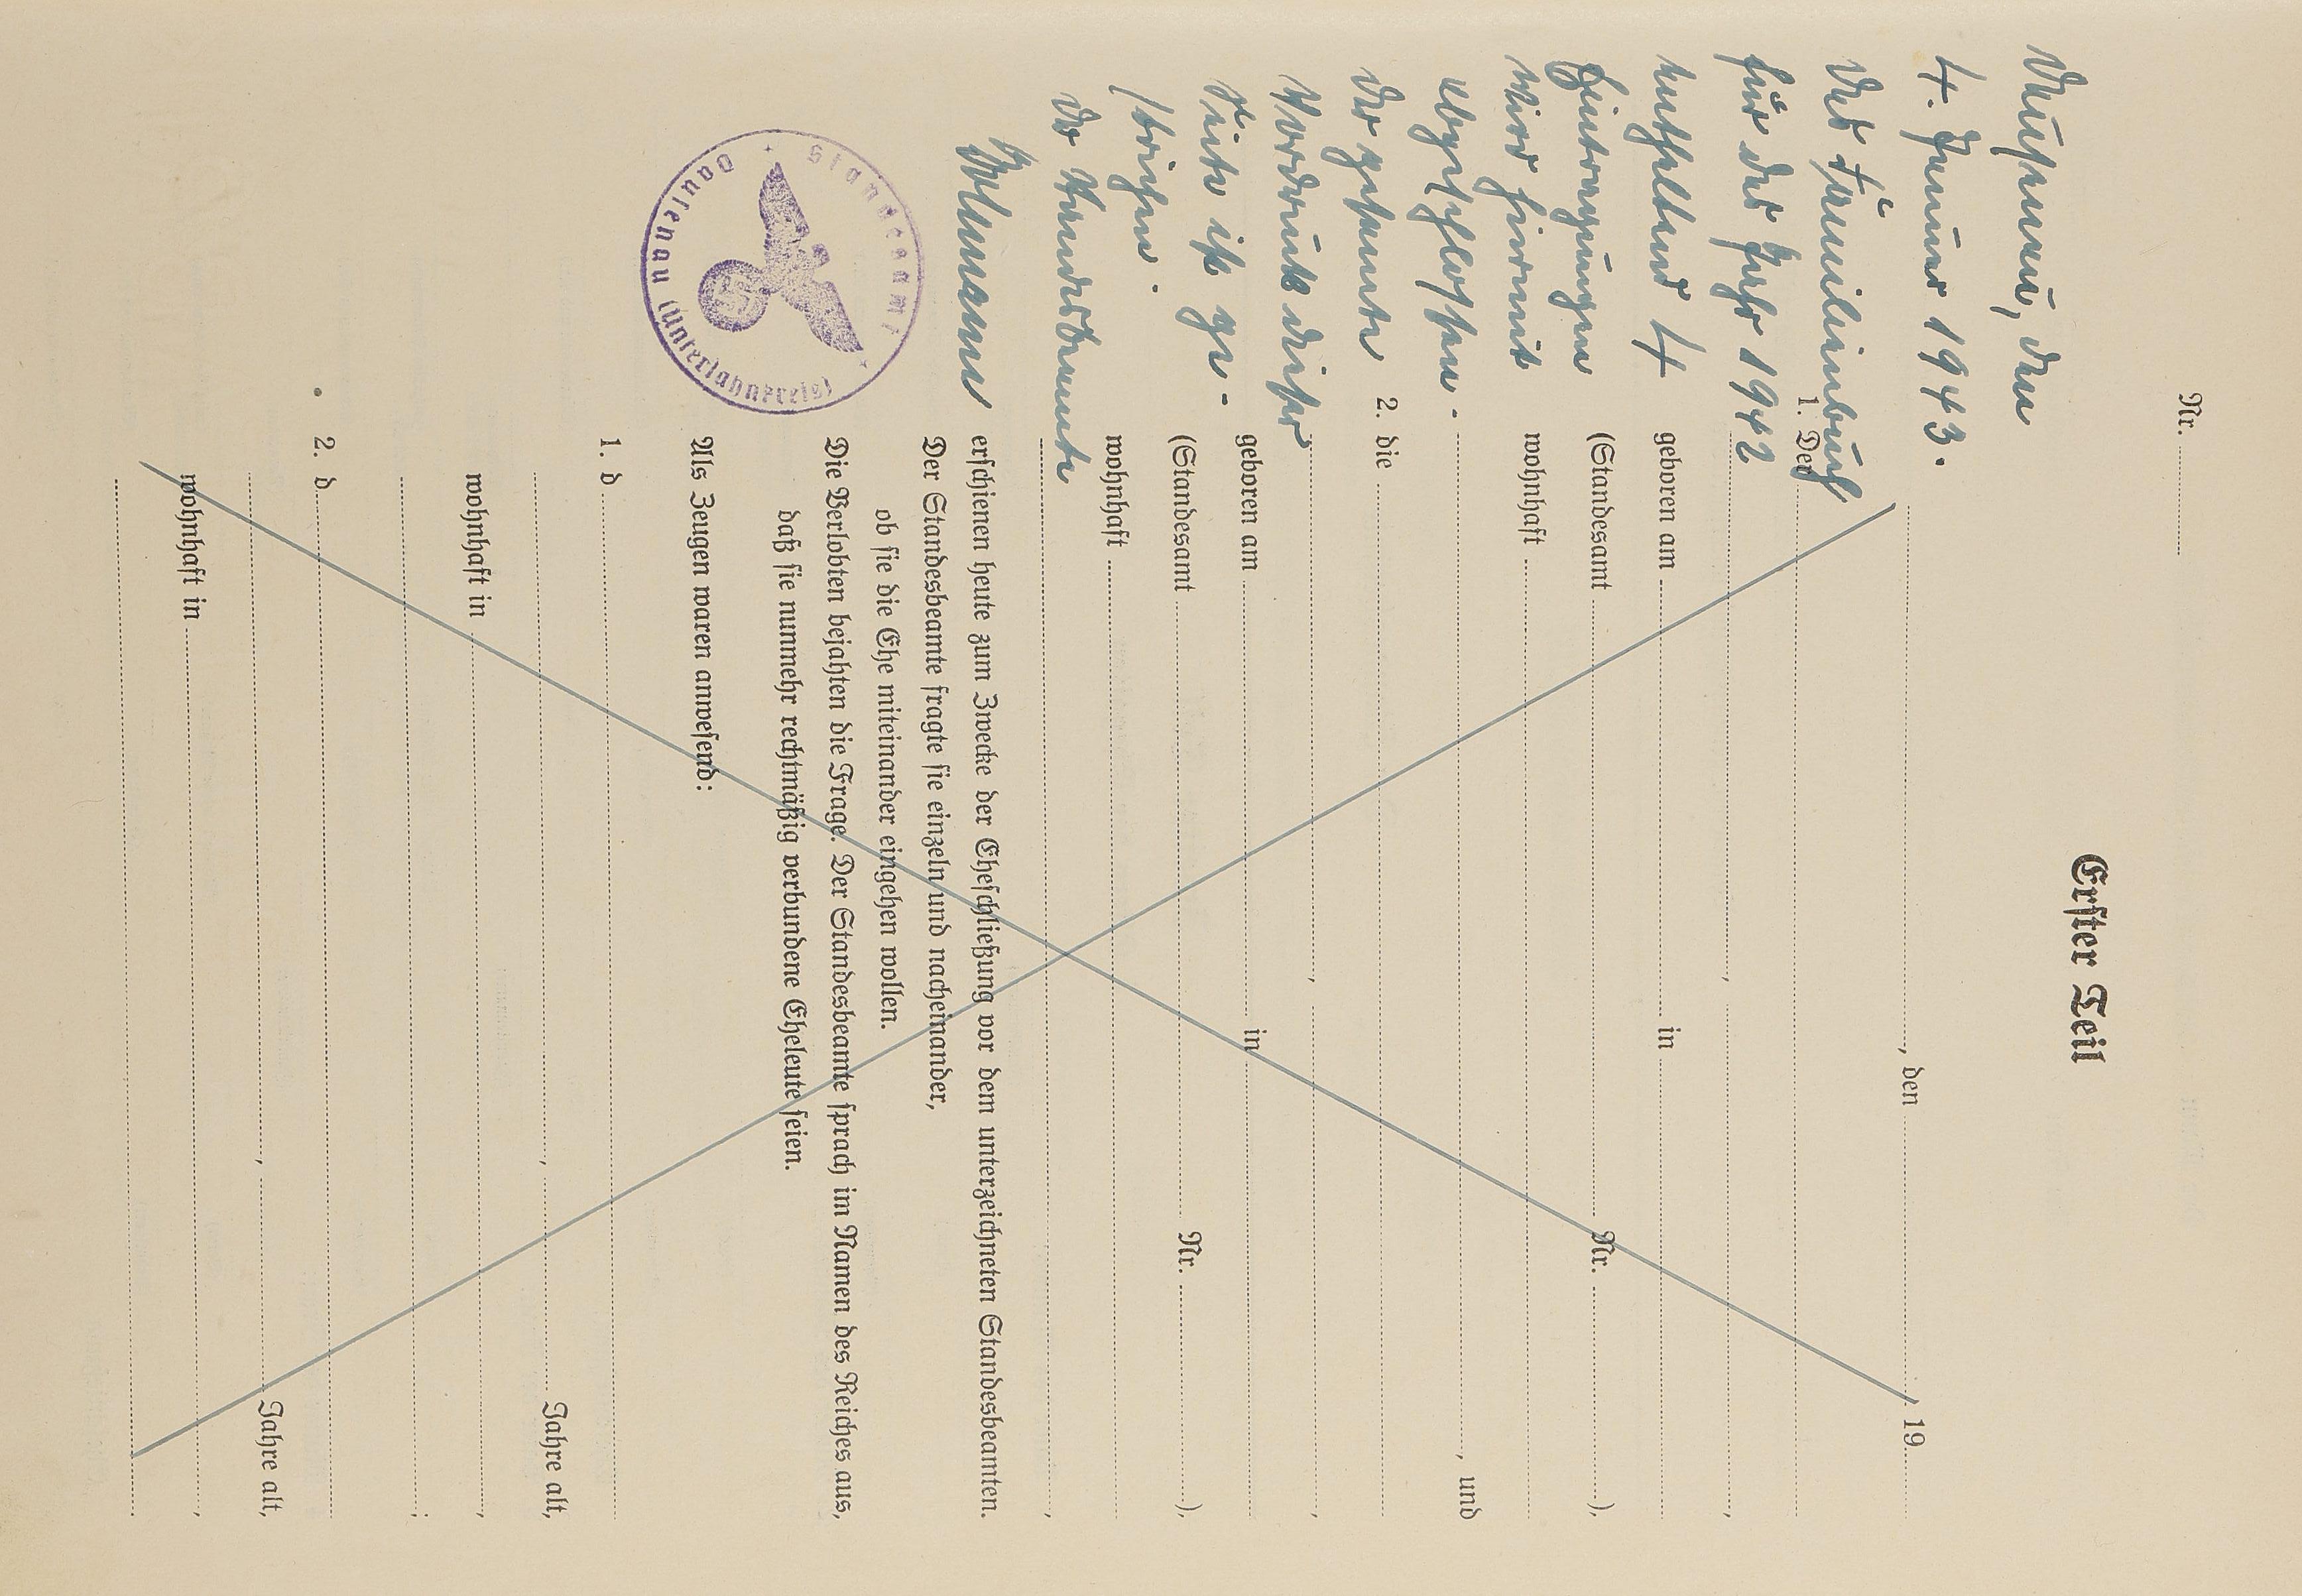 Nr.
Erster Teil
Dausenau, den
4. Januar 1943.
Das Familienbuch
für das Jahr 1942
enthaltend 4
Eintragungen
wird hiermit
abgeschlossen.
Der gesamte
Vordruck dieser
Seite ist ge-
strichen.
Der Standesbeamte
Standesamt
Dausenau (Unterlahnkreis)
, den 19
1. Der
,
geboren am in
(Standesamt Nr. ),
wohnhaft
, und
2. die
,
geboren am in
(Standesamt Nr. ),
wohnhaft
,
erschienen heute zum Zwecke der Eheschließung vor dem unterzeichneten Standesbeamten.
Der Standesbeamte fragte sie einzeln und nacheinander,
ob sie die Ehe miteinander eingehen wollen.
Die Verlobten bejahten die Frage. Der Standesbeamte sprach im Namen des Reiches aus,
daß sie nunmehr rechtmäßig verbundene Eheleute seien.
Als Zeugen waren anwesend:
1. d
, Jahre alt,
wohnhaft in ,
;
2. d
, Jahre alt,
wohnhaft in ,
.